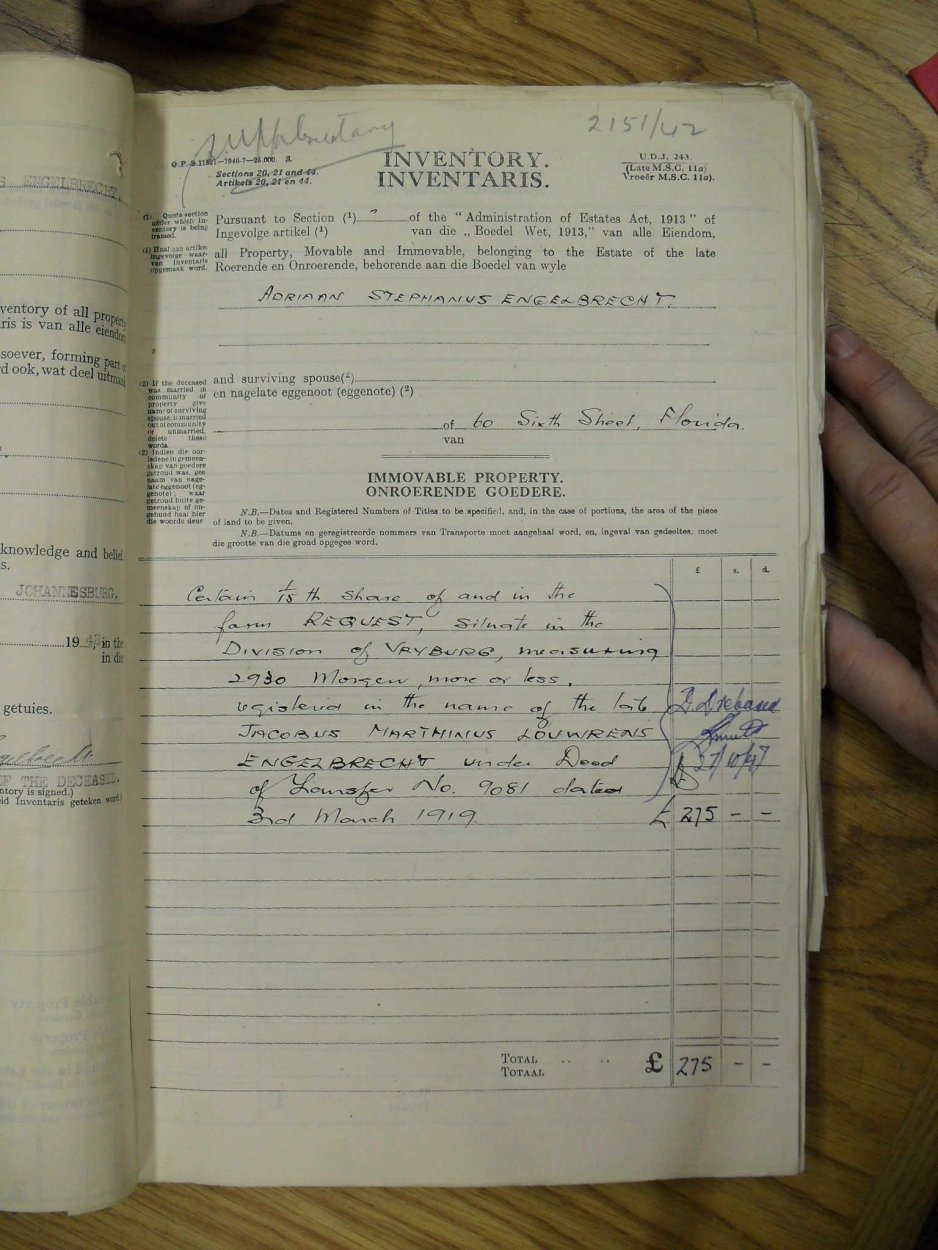 S ENGELBRECHT.
ventory of all property
ris is van alle eiendom
soever, forming part of
d ook, wat deel uitmaak
knowledge and belief
s.
JOHANNESBURG.
19 42, in the
in die
getuies.
OF THE DECEASED.
ntory is signed.)
eid Inventaris geteken word.)
Supplementary
2151/42
G.P.-S.11821—1946-7—25,000. S.
Sections 20, 21 and 44.
Artikels 20, 21 en 44.
INVENTORY.
INVENTARIS.
U.D.J. 243
(Late M.S.C. 11a)
Vroeër M.S.C. 11a).
(1) Quote section under which inventory is being framed.
(1) Haal aan artikel ingevolge waarvan Inventaris opgemaak word.
Pursuant to Section (¹) of the “ Administration of Estates Act, 1913 ” of
Ingevolge artikel (¹) van die „ Boedel Wet, 1913,” van alle Eiendom,
all Property, Movable and Immovable, belonging to the Estate of the late
Roerende en Onroerende, behorende aan die Boedel van wyle
ADRIAAN STEPHANUS ENGELBRECHT.
(2) If the deceased
was married in
community of
property give
name of surviving
spouse; if married
out of community
or unmarried,
delete these
words.
(2) Indien die oor-
ledene in gemeen-
skap van goedere
getroud was, gee
naam van nage-
late eggenoot (eg-
genote); waar
getroud buite ge-
meenskap of on-
gehuud haal hier
die woorde deur
and surviving spouse(²)
en nagelate eggenoot (eggenote) (²)
of 60 Sixth Street, Florida.
van
IMMOVABLE PROPERTY.
ONROERENDE GOEDERE.
N.B.—Dates and Registered Numbers of Titles to be specified, and, in the case of portions, the area of the piece
of land to be given.
N.B.—Datums en geregistreerde nommers van Transporte moet aangehaal word, en, ingeval van gedeeltes, moet
die grootte van die grond opgegee word.
£ s. d.
Certain 1/15 th share of and in the
farm REQUEST, situate in the
DIVISION of VRYBURG, measuring
2930 Morgen, more or less,
registered in the name of the late
JACOBUS MARTHINUS LOUWRENS
ENGELBRECHT under Deed
of Transfer No. 9081 dated
3rd March 1919.
27/10/47
£ 275 - -
TOTAL .. .. £ 275 - -
TOTAAL